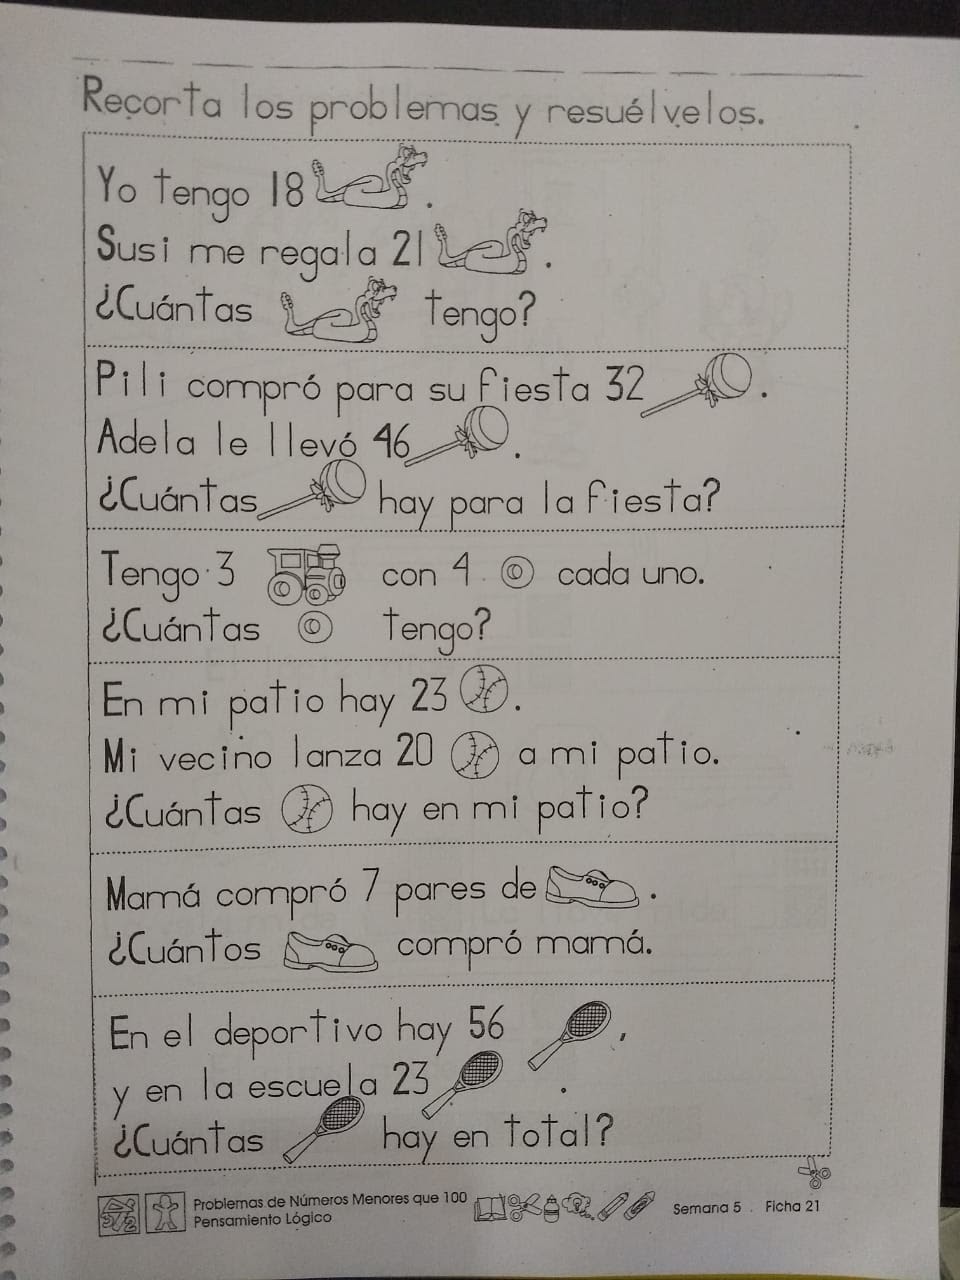 Recorta los problemas y resuélvelos.
Yo tengo 18 .
Susi me regala 21 .
¿Cuántas tengo?
Pili compró para su fiesta 32 .
Adela le llevó 46 .
¿Cuántas hay para la fiesta?
Tengo 3 con 4 cada uno.
¿Cuántas tengo?
En mi patio hay 23 .
Mi vecino lanza 20 a mi patio.
¿Cuántas hay en mi patio?
Mamá compró 7 pares de .
¿Cuántos compró mamá.
En el deportivo hay 56 ,
y en la escuela 23 .
¿Cuántas hay en total?
Problemas de Números Menores que 100
Pensamiento Lógico
Semana 5 . Ficha 21